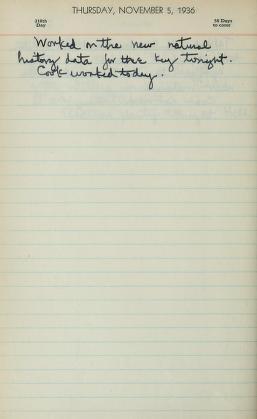 THURSDAY, NOVEMBER 5, 1936
310th Day
56 Days to come
Worked on the new natural
history data for the key tonight.
Cook worked today.